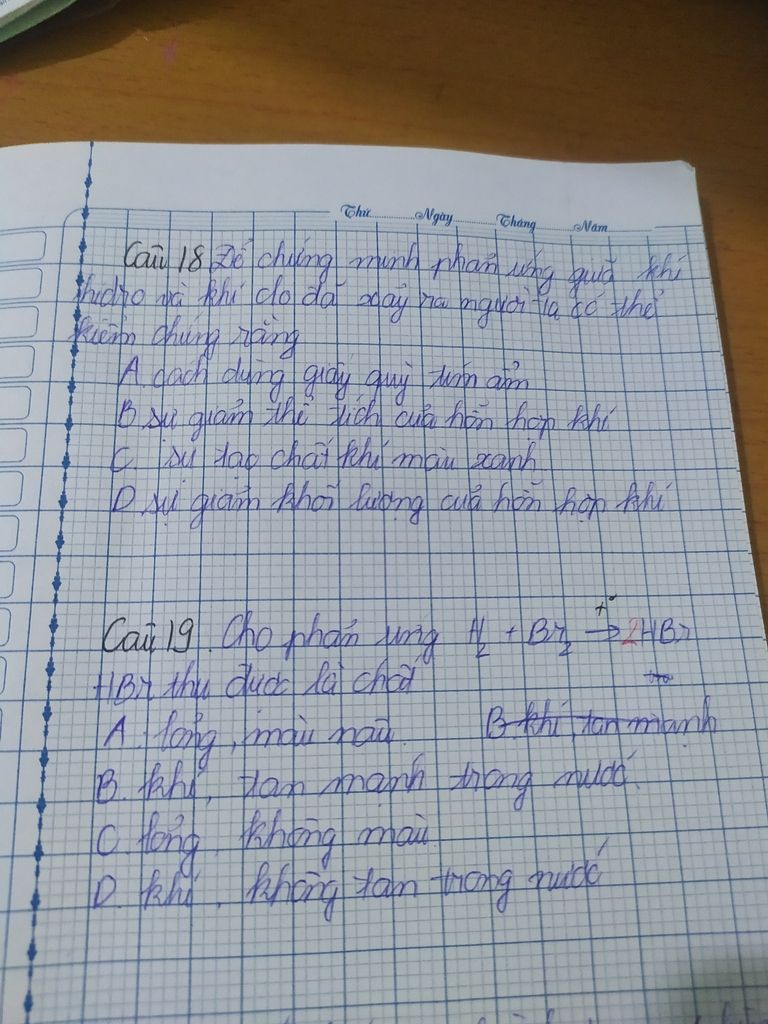 Thứ.........Ngày.........Tháng.........Năm.........
Câu 18 Để chứng minh phản ứng giữa khí
hidro và khí clo đã xảy ra người ta có thể
kiểm chứng rằng
A. cách dụng giấy quỳ tím ẩm
B sự giảm thể tích của hỗn hợp khí
C. sự tạo chất khí màu xanh
D sự giảm khối lượng của hỗn hợp khí
Câu 19. Cho phản ứng H₂ + Br₂ →t° 2HBr
HBr thu được là chất
A. lỏng, màu nâu. B. khí tan mạnh
B. khí, tan mạnh trong nước.
C. lỏng, không màu
D. khí, không tan trong nước